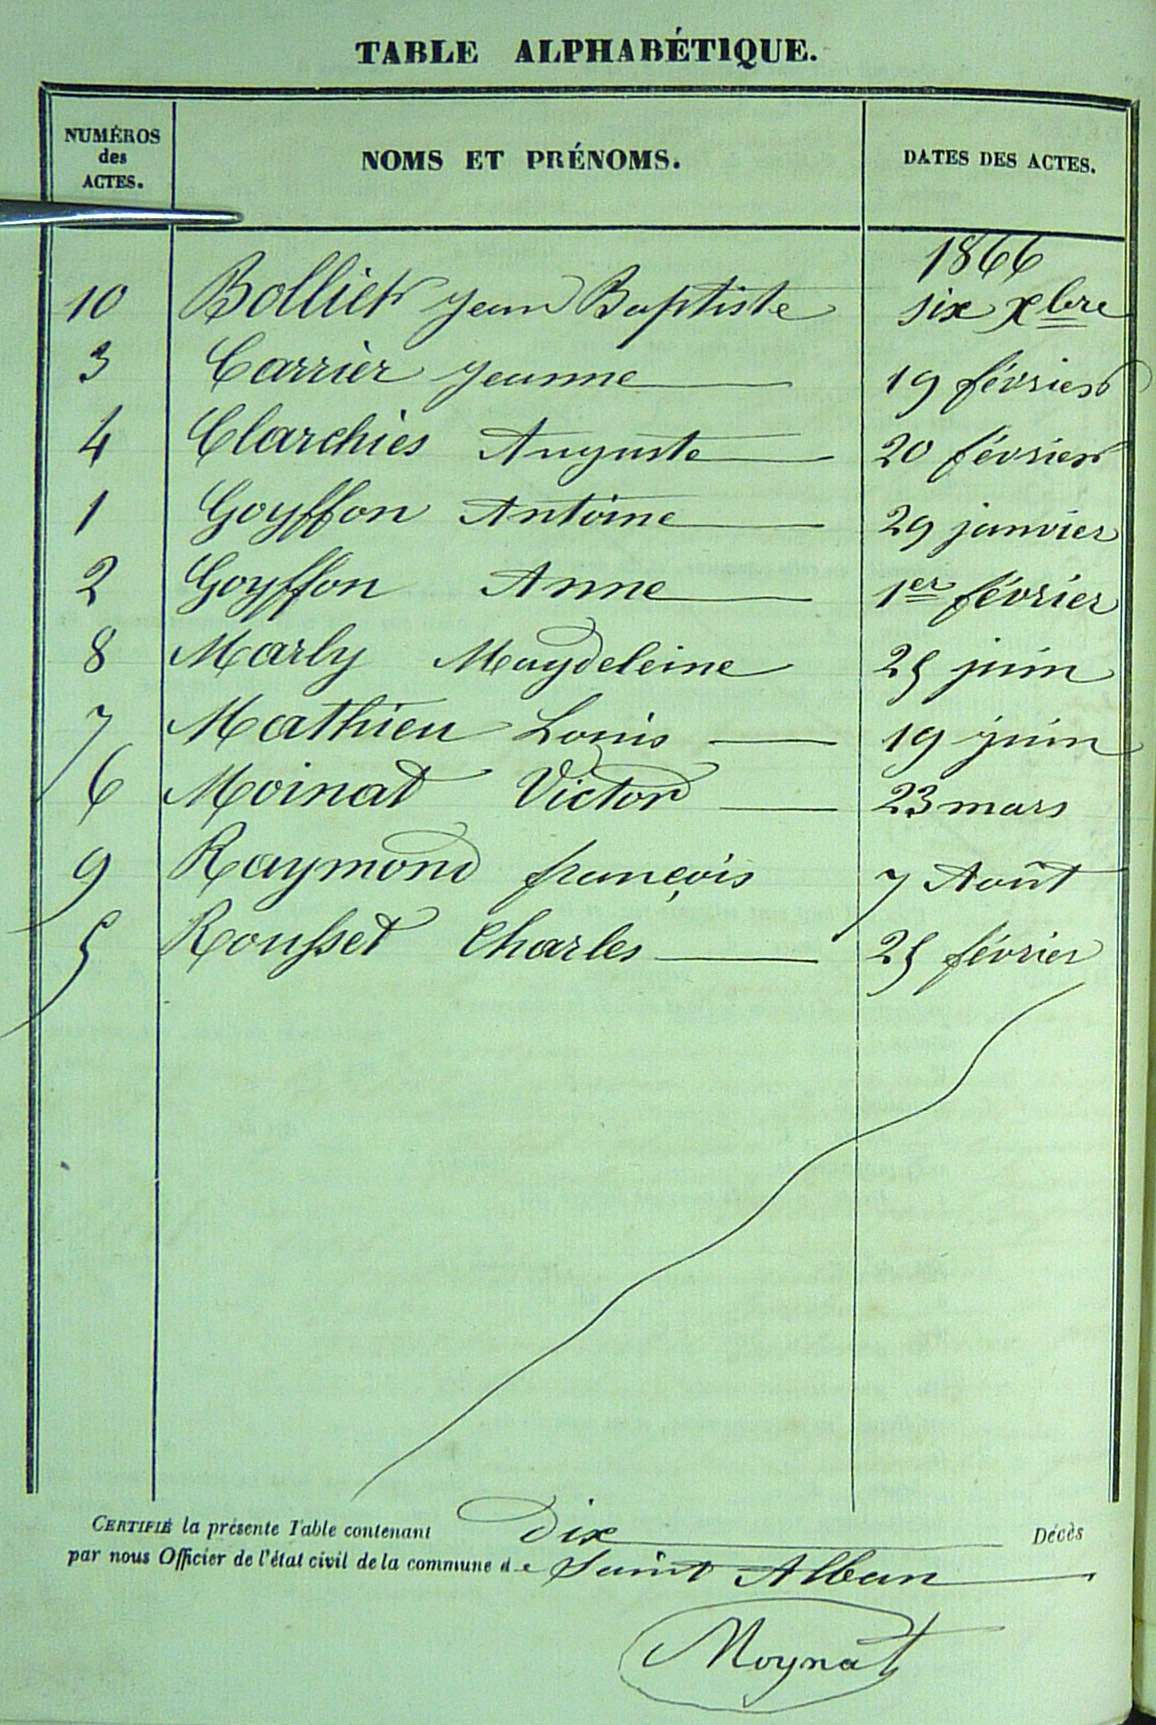 TABLE ALPHABÉTIQUE.
NUMÉROS des ACTES. NOMS ET PRÉNOMS. DATES DES ACTES.
1866
10 Bolliet Jean Baptiste six Xbre
3 Carrier Jeanne 19 février
4 Clarchies Auguste 20 février
1 Goyffon Antoine 29 janvier
2 Goyffon Anne 1er février
8 Marly Magdeleine 25 juin
7 Mathieu Louis 19 juin
6 Moinat Victor 23 mars
9 Raymond françois 7 Août
5 Rousset Charles 25 février
CERTIFIÉ la présente Table contenant Dix Décès
par nous Officier de l'état civil de la commune de Saint Alban
Moynat